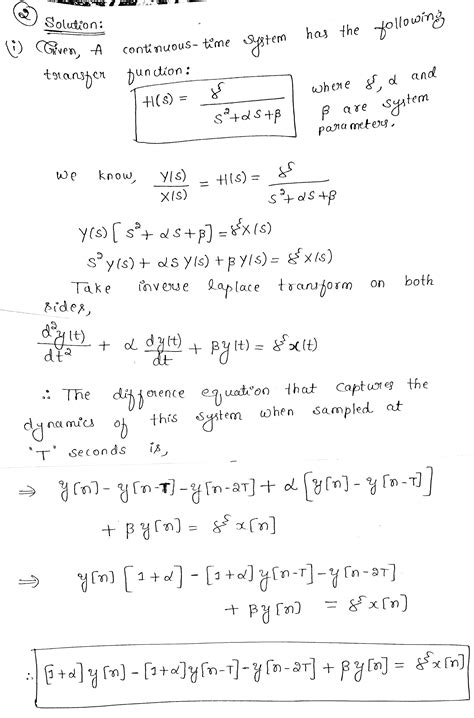 ② Solution:
(i) Given, A continuous-time system has the following
transfer function:
H(s) = γ / (s²+αs+β)
where γ, α and
β are system
parameters.
We know, Y(s)/X(s) = H(s) = γ / (s²+αs+β)
Y(s)[s²+αs+β] = γX(s)
s²Y(s)+αsY(s)+βY(s) = γX(s)
Take inverse laplace transform on both
sides,
d²y(t)/dt² + α dy(t)/dt + βy(t) = γx(t)
∴ The difference equation that captures the
dynamics of this system when sampled at
"T" seconds is,
⇒ y[n]-y[n-T]-y[n-2T]+α[y[n]-y[n-T]]
+βy[n] = γx[n]
⇒ y[n][1+α]-[1+α]y[n-T]-y[n-2T]
+βy[n] = γx[n]
∴ [1+α]y[n]-[1+α]y[n-T]-y[n-2T]+βy[n] = γx[n]